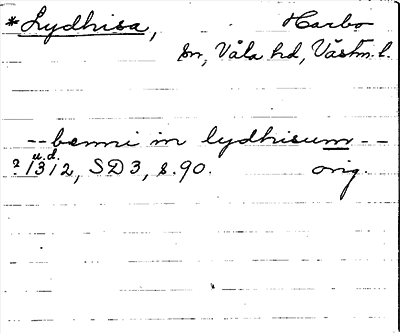 *Lydhisa, Harbo
sn, Våla hd, Västm. l.
-- benni in lydhisum --
? 1312, u.d. SD 3, s. 90. orig.